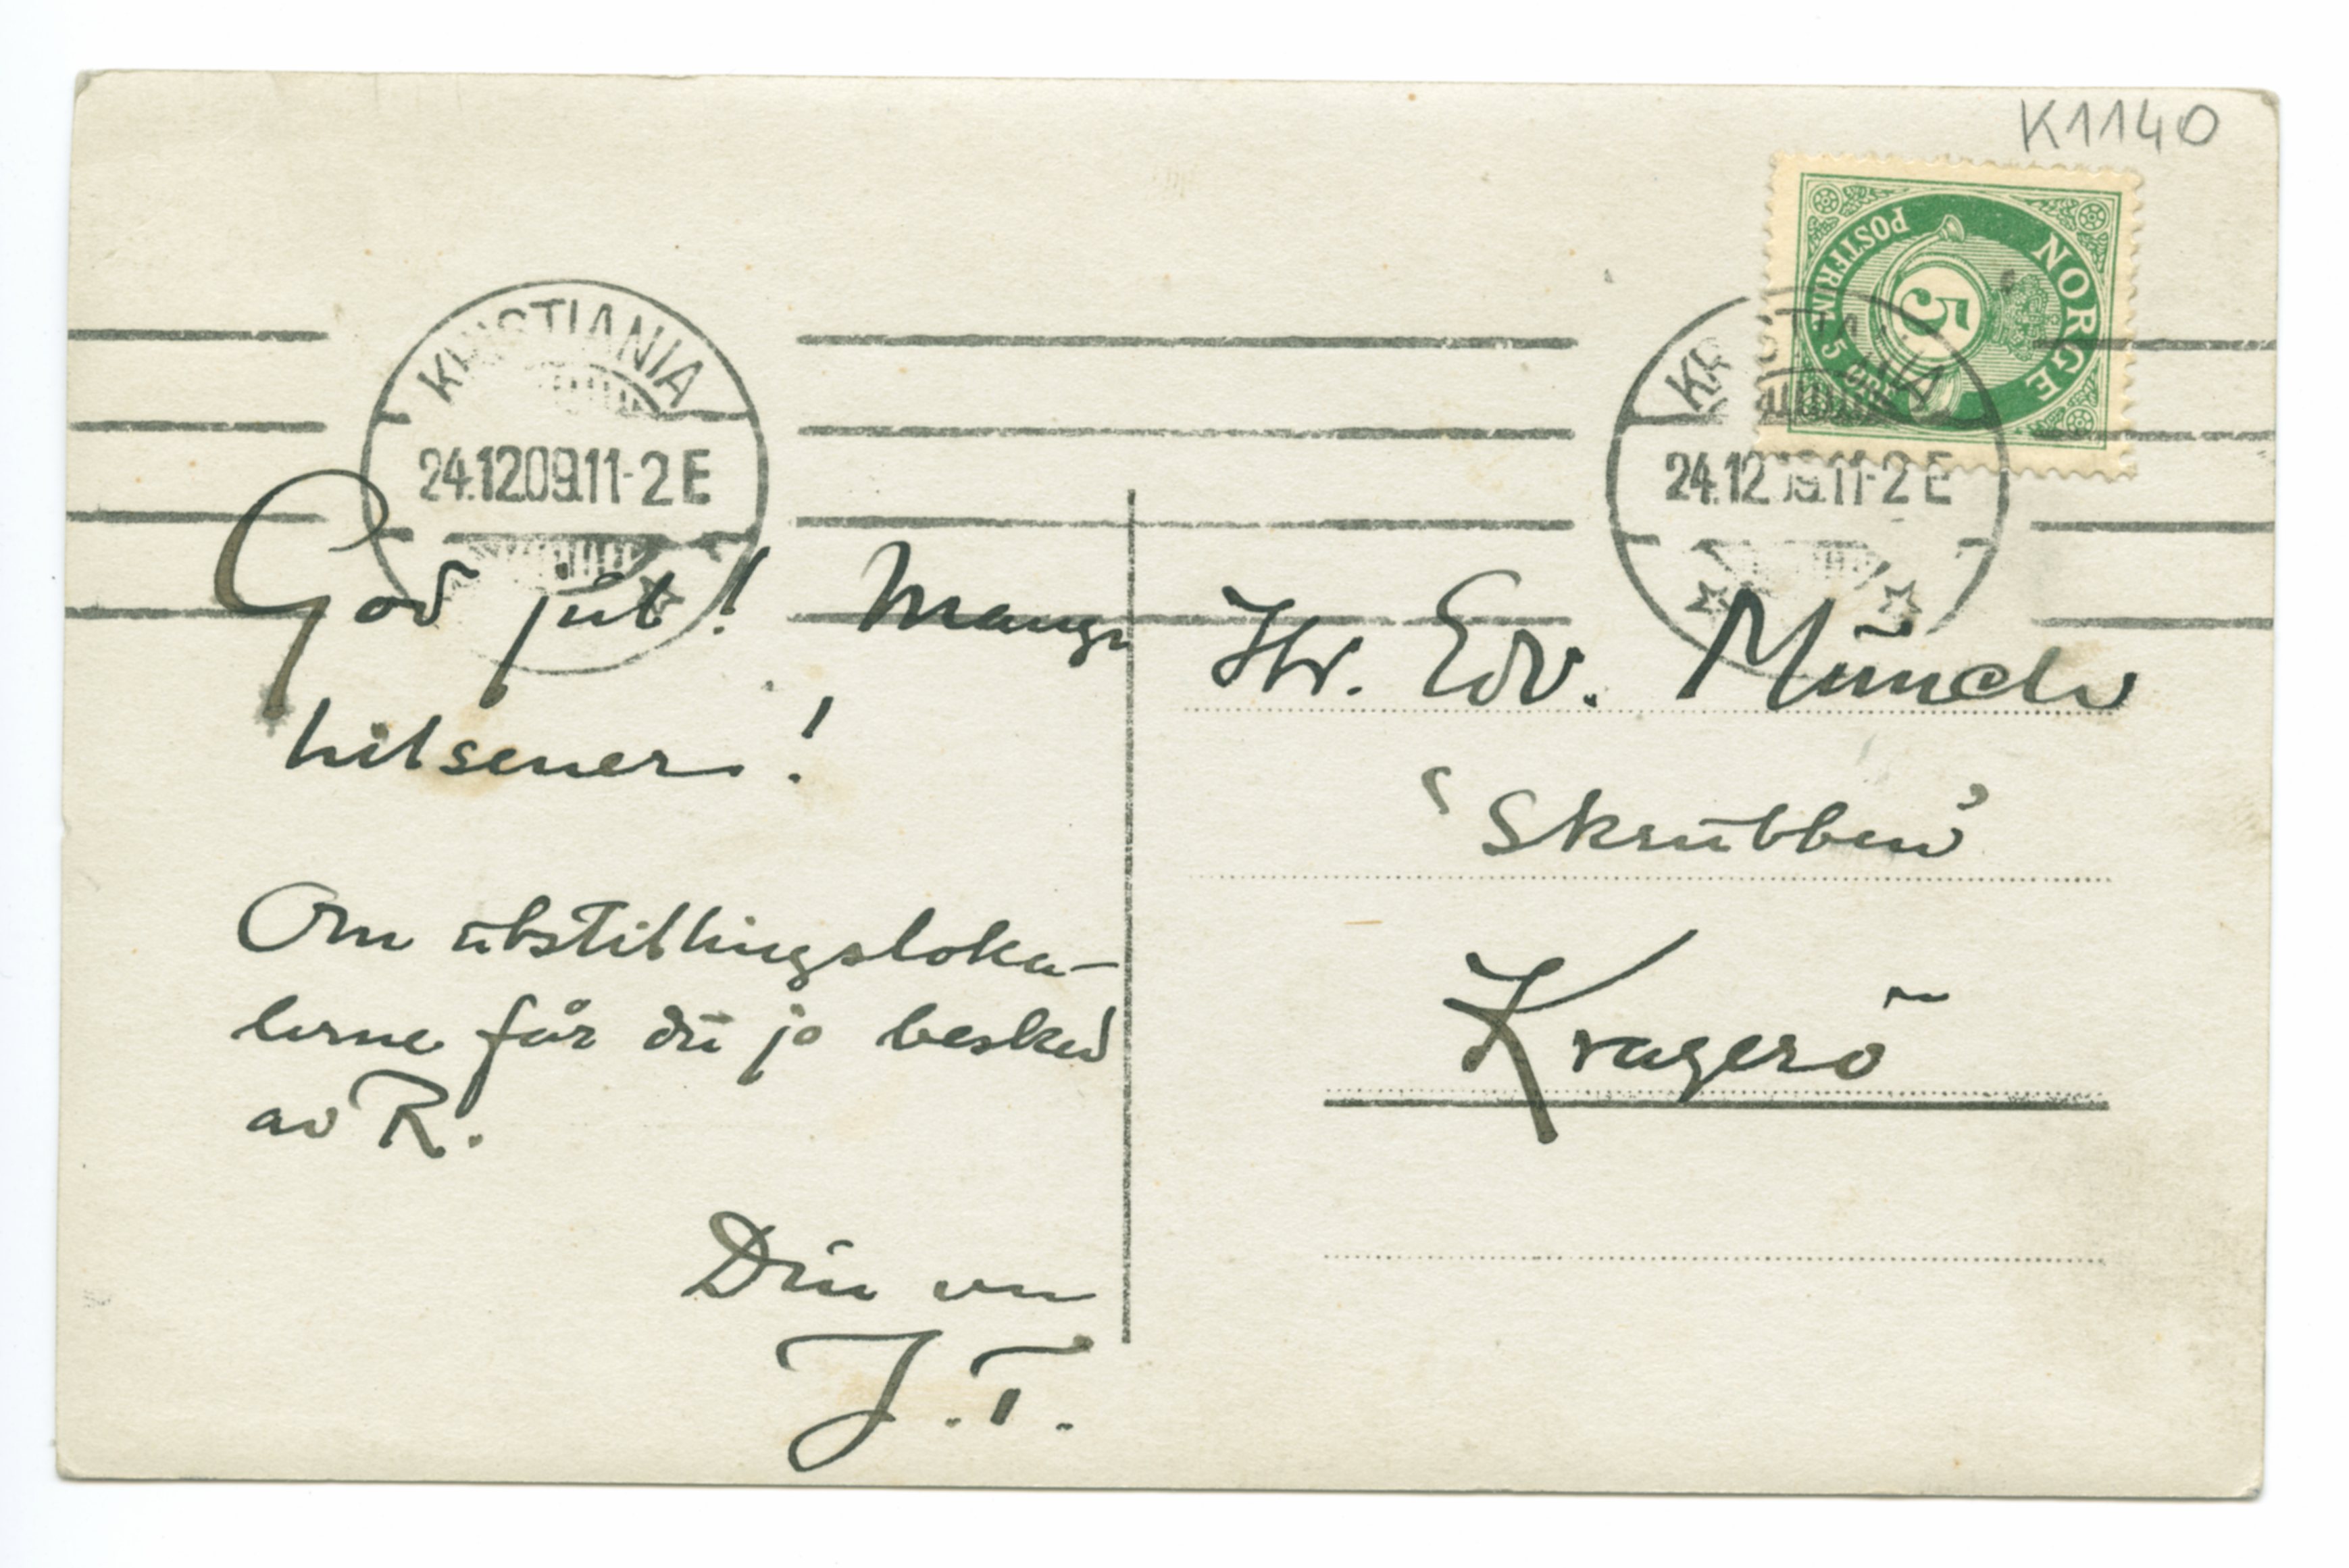 K1140
NORGE
POSTFRIM. 5 ØRE
5
KRISTIANIA
24.12.09.11-2 E
KRISTIANIA
24.12.09.11-2 E
God jul! Mange
hilsener!
Om utstillingsloka-
lerne får du jo besked
av R.
Din ven
J.T.
Hr. Edv. Münch
"Skrubben"
Kragerö